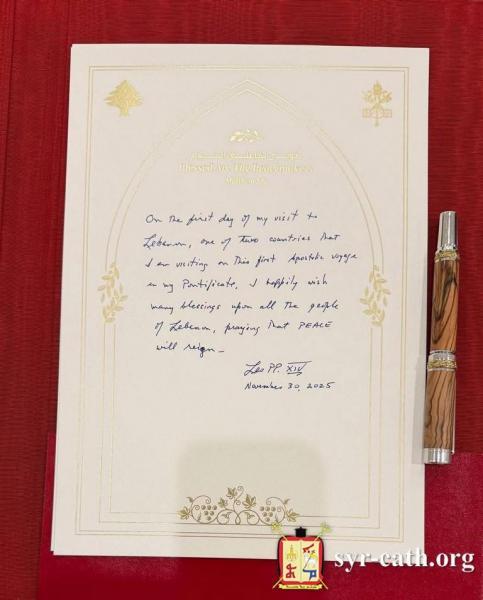 Blessed Are The Peacemakers
On the first day of my visit to
Lebanon, one of two countries that
I am visiting on this first Apostolic voyage
in my Pontificate, I happily wish
many blessings upon all the people
of Lebanon, praying that PEACE
will reign—
Leo PP. XIV
November 30, 2025
syr-cath.org